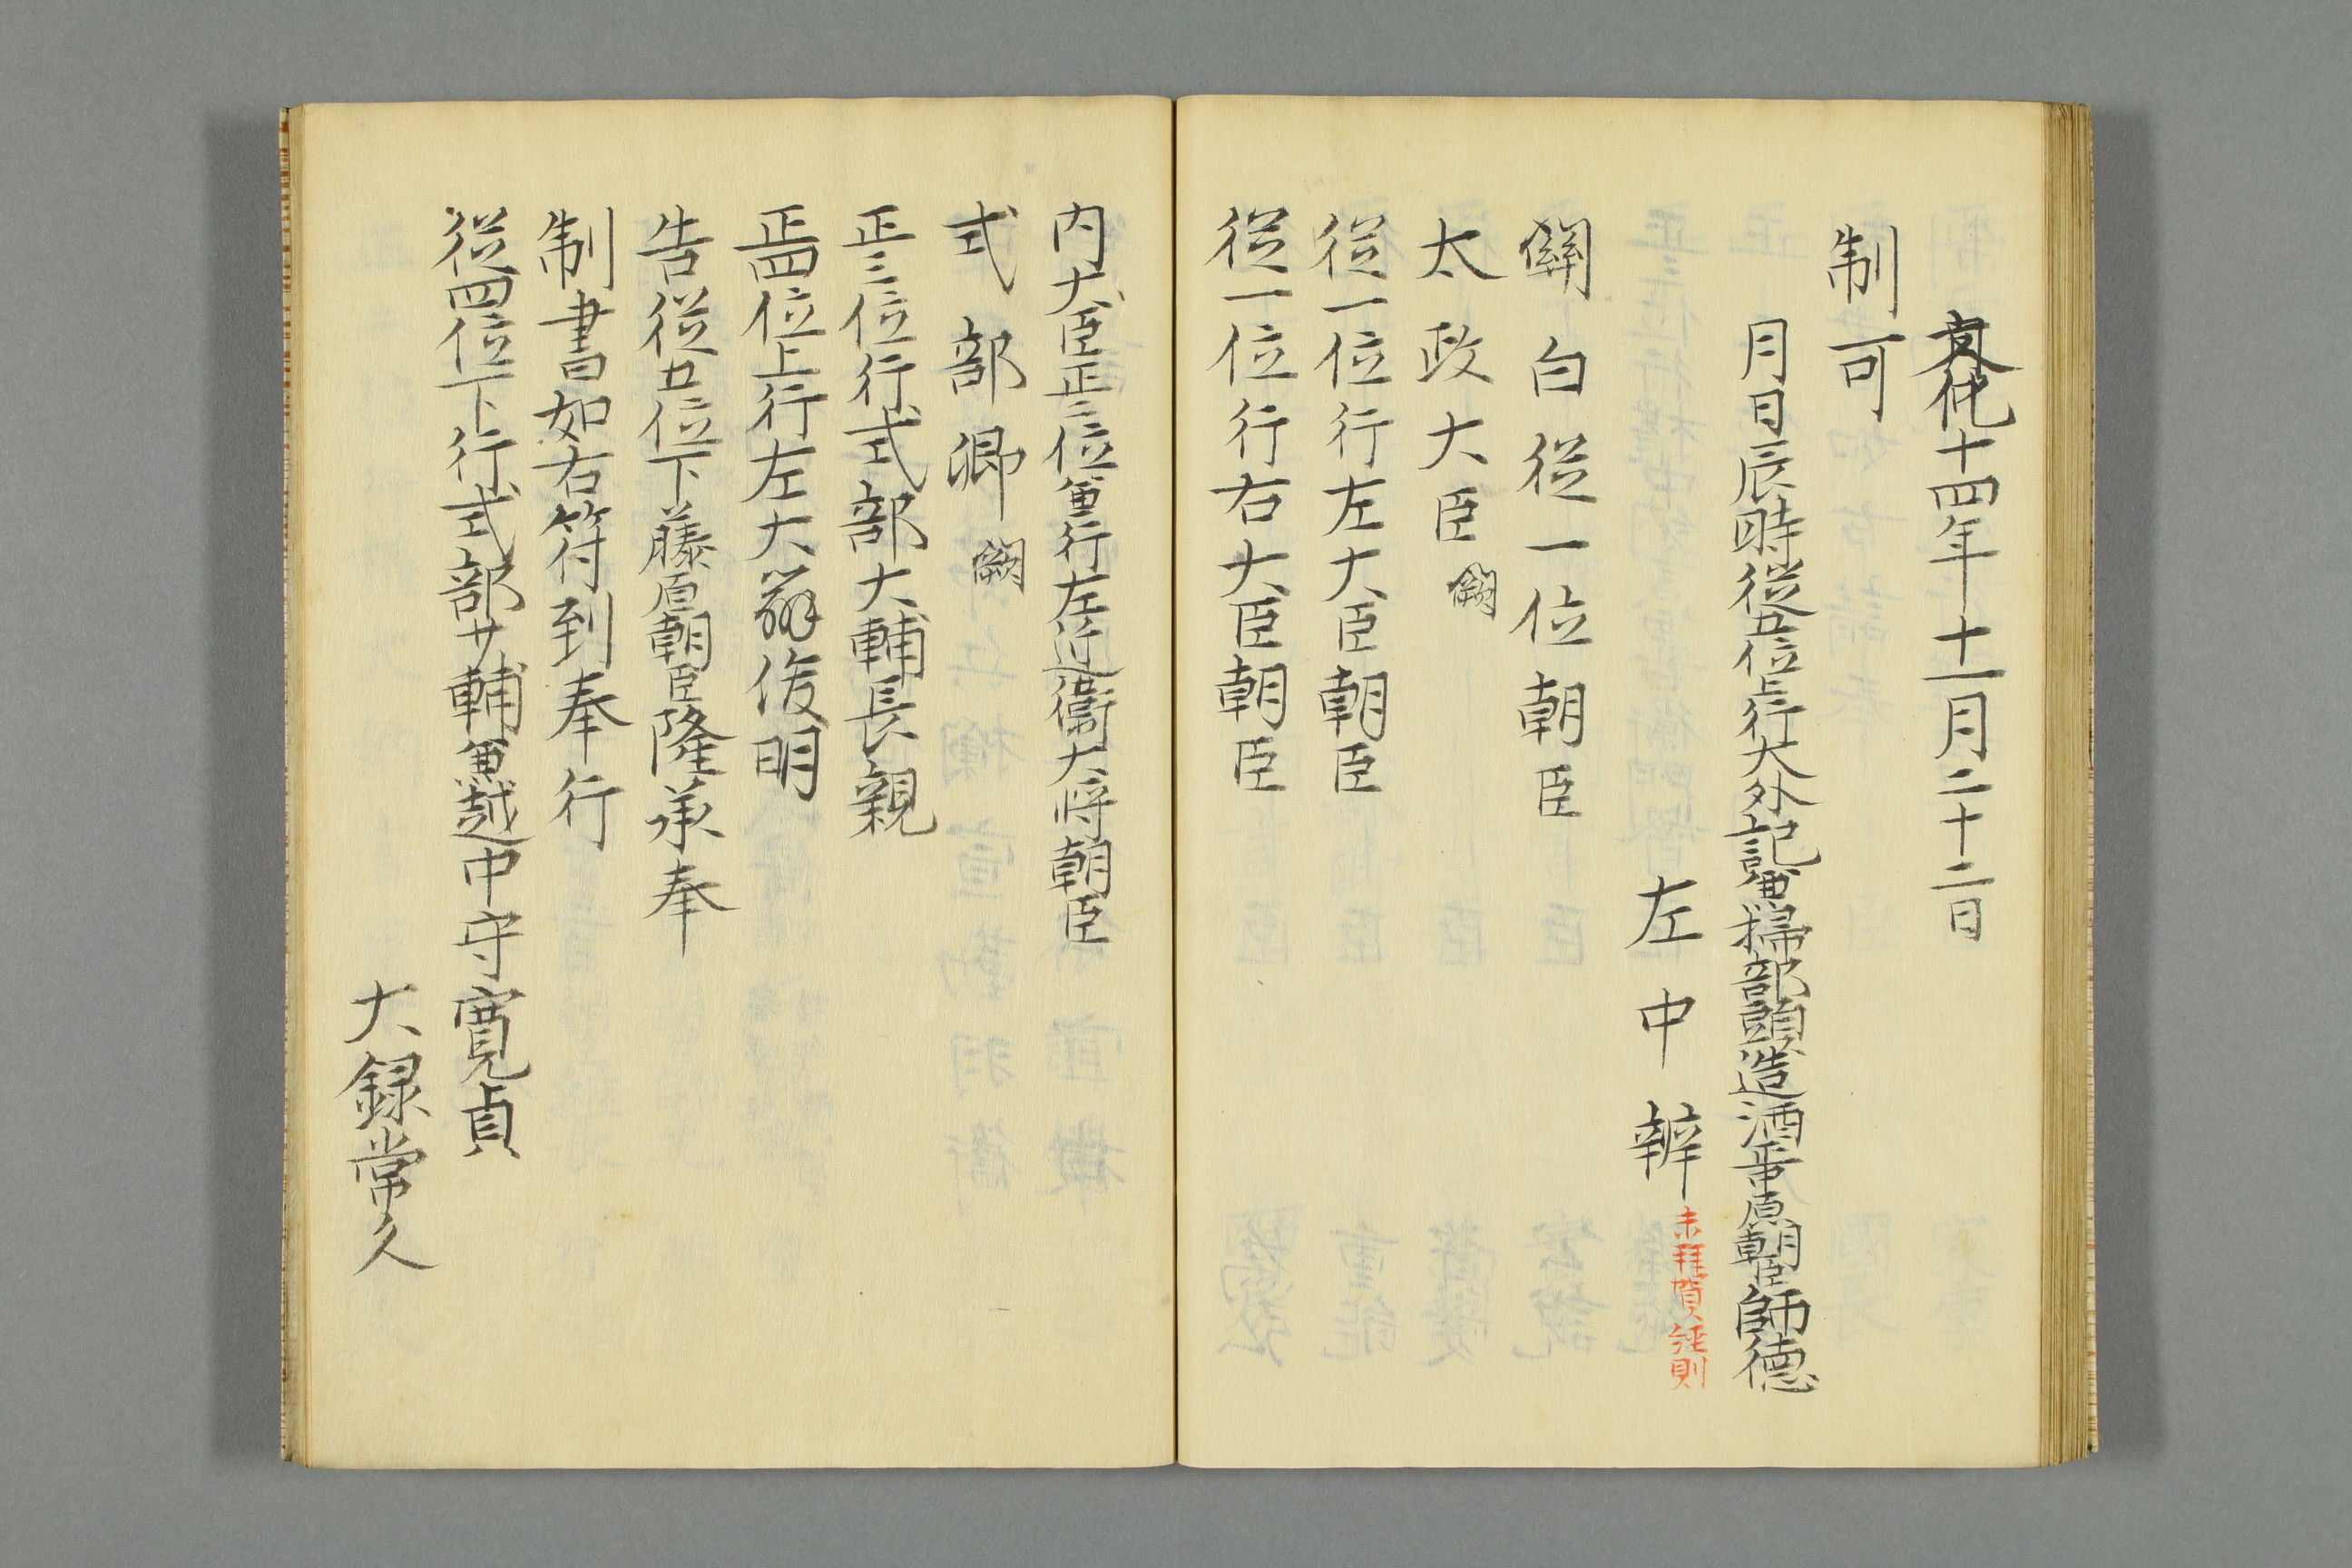 文化十四年十一月二十二日
制可
月日辰時從五位上行大外記兼掃部頭造酒正中原朝臣師徳
左中辨 未拝賀経則
關白從一位朝臣
太政大臣闕
從一位行左大臣朝臣
從一位行右大臣朝臣
内大臣正二位兼行左近衛大将朝臣
式部卿闕
正三位行式部大輔長親
正四位上行左大辨俊明
告從五位下藤原朝臣隆光奉
制書如右符到奉行
從四位下行式部少輔兼越中守寛貞
大録常久